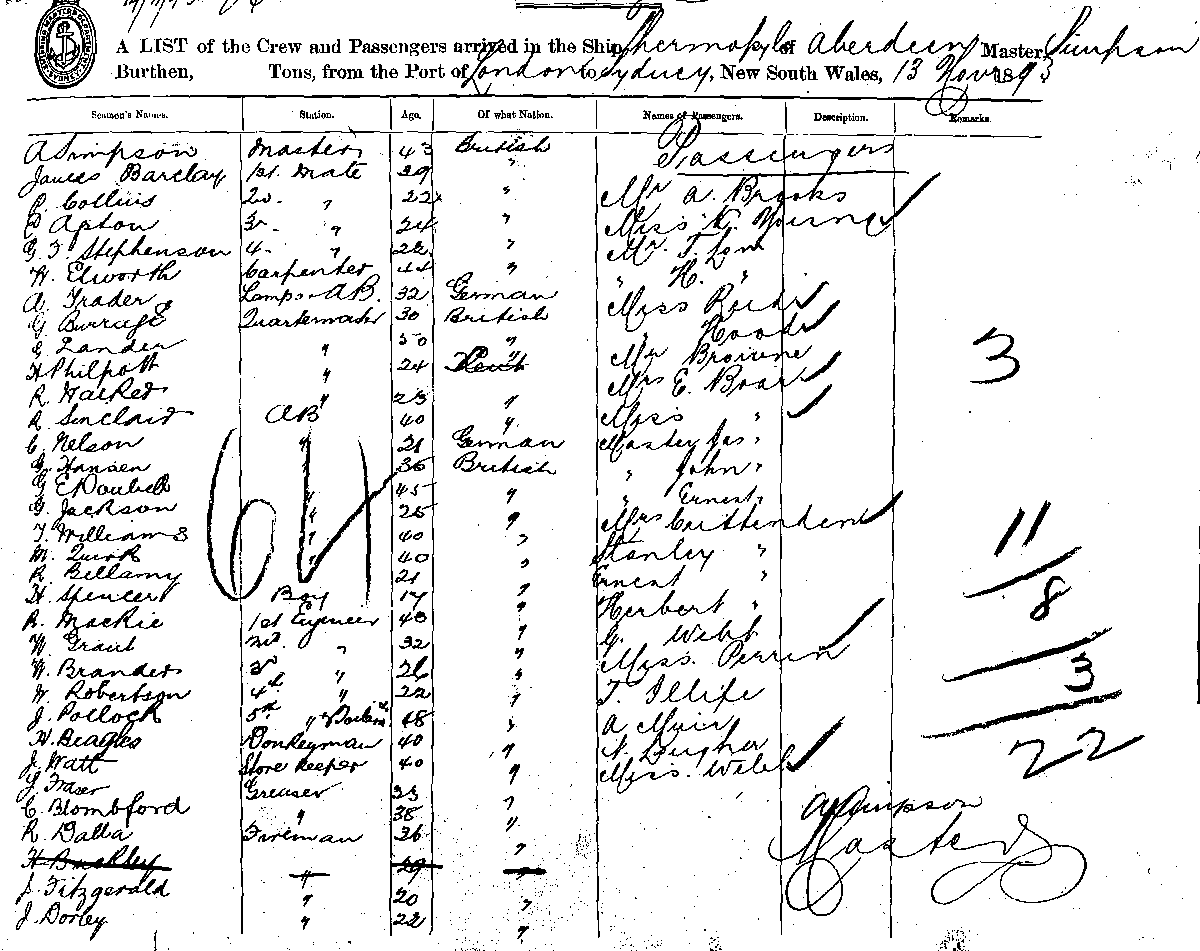 A LIST of the Crew and Passengers arrived in the Ship Thermopylæ of Aberdeen, Master, Simpson
Burthen, Tons, from the Port of London to Sydney, New South Wales, 13 Novr 1893
Seamen's Names. Station. Age. Of what Nation. Names of Passengers. Description. Remarks.
A Simpson Master 43 British Passengers
James Barclay 1st. Mate 29 "
P. Collins 2d. " 22 " Mr A. Brooks
Apton 3d. " 24 " Miss K. Young
G. T. Stephenson 4. " 22 " Mr. T. Low
W. Elworth Carpenter 44 " " H. "
A Trader Lamps - AB. 32 German Miss
G Burrage Quartermaster 30 British "
E Lander " 50 " Mr Browne
H Philpott " 24 Mrs E. Boar
R. Halked " 23 " Miss "
R Sinclair AB 40 " Master Jas "
C. Nelson " 21 German " John "
G. Hansen " 36 British " Ernest "
G E Doubell " 45 " Mrs Crittenden
G. Jackson " 25 " Stanley "
T. Williams " 40 " Ernest "
M. Quirk " 40 " Herbert "
R. Bellamy " 21 " G. Webb
H. Spencer Boy 17 " Miss. Perrin
R. Mackie 1st Engineer 43 " T. Illife
W. Grant 2nd. " 32 " A Muir
W. Branders 3d " 26 "
W. Robertson 4th " 22 " Miss. Welch
J. Pollock 5th " 48 "
H. Beagles Donkeyman 40 "
J. Watt Store Keeper 40 "
J. Fraser Greaser 23 "
C. Blombford " 38 "
R Dalla Fireman 36 "
H Buckley " 29 "
J. Fitzgerald " 20 "
J. Dorley " 22 "
64
3
11
8
3
22
A Simpson
Master